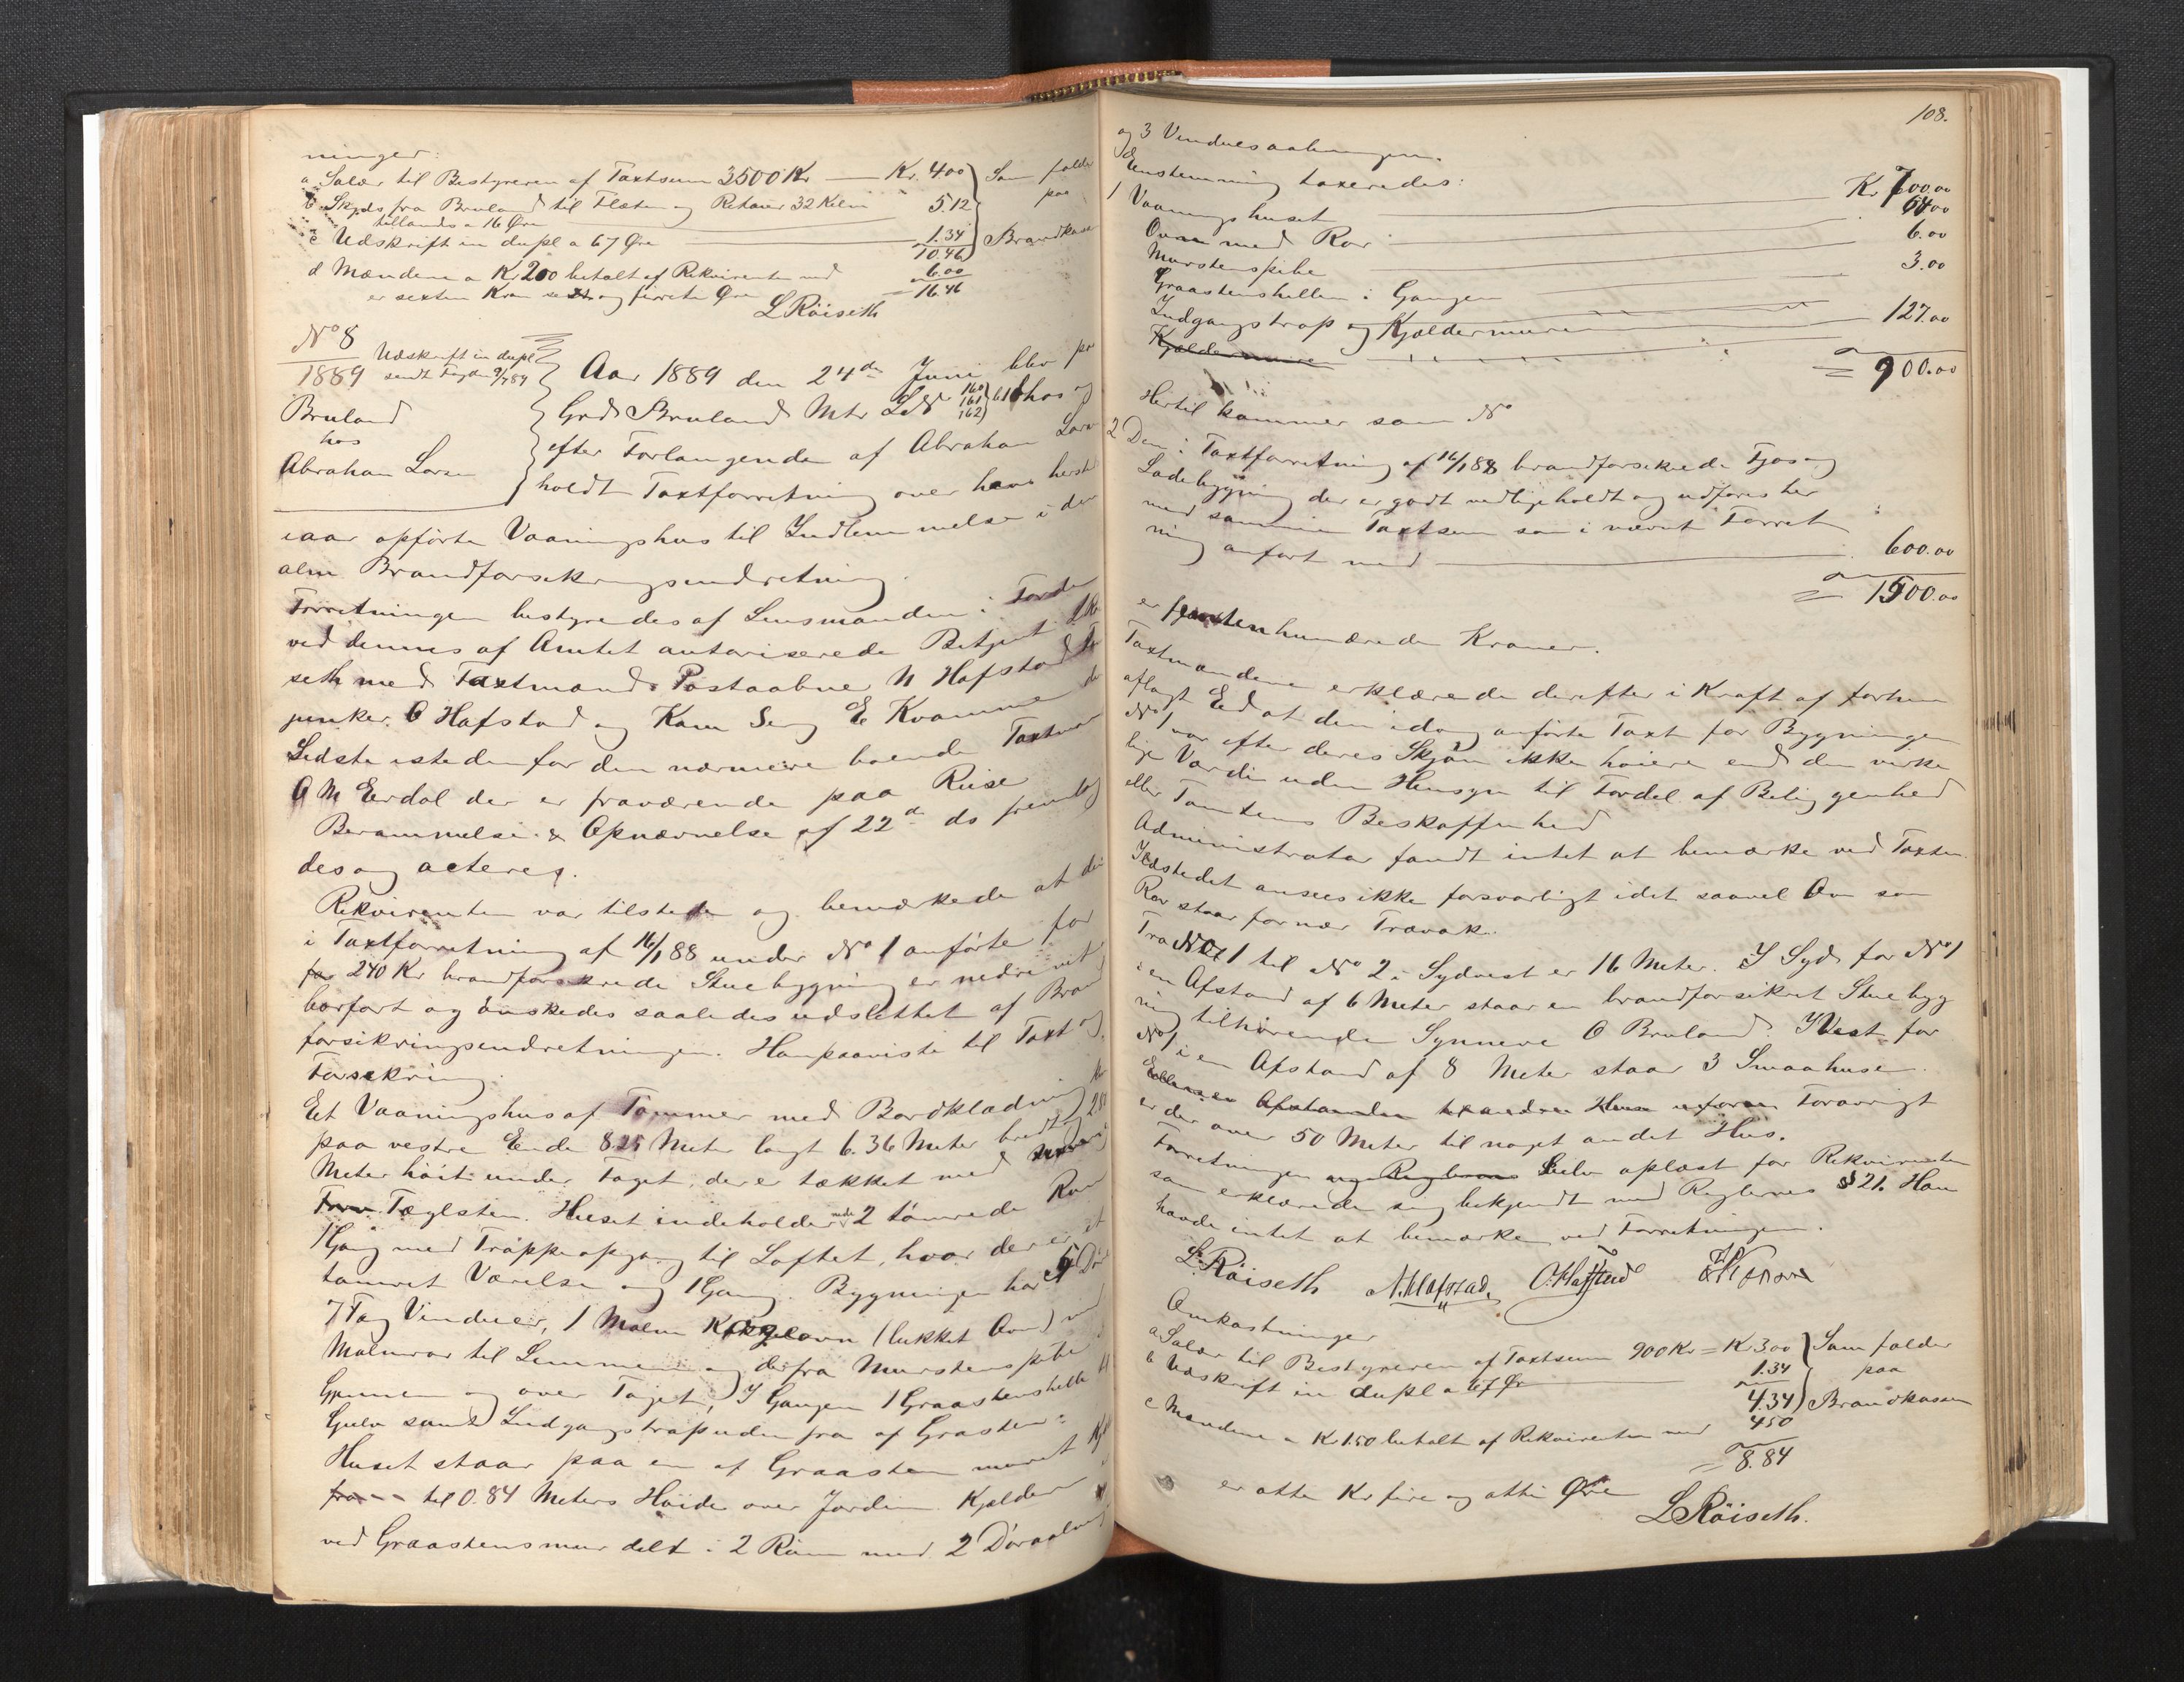 ninger:
a Salær til Bestyreren af Taxtsum 3500 Kr — Kr. 4.00 } Som falder
b Skyds fra Bruland til Flæten og Retour 32 Kilm " 5.12 } paa
tillands a 16 Øre
c Udskrift in dupl a 67 Øre — 1.34 } Brandkassen
10.46
d Mændene a Kr 200 betalt af Rekvirenten med 6.00
er sexten Kron og firreti Øre = 16.46
L Röiseth
No 8
1889
Udskrift in dupl
sendt Fogden 9/7 89
Bruland
hos
Abraham Larsen
Aar 1889 den 24de Juni blev paa
Grd Bruland Mtr L No 160 161 162 hos og
efter Forlangende af Abraham Larsen
holdt Taxtforretning over hans herst
iaar opførte Vaaningshus til Indlemmelse i den
alm Brandforsikringsindretning.
Forretningen bestyredes af Lensmanden i Førde
ved dennes af Amtet autoriserede Betjent L Rø
seth med Taxtmænd: Postaabner N Hafstad
junker O Hafstad og E Kvamme
Sidste istedenfor den nærmere boende Taxtm
O M Eerdal der er fraværende paa Reise
Berammelse & Opnævnelse af 22de ds fremlag
des og acteres.
Rekvirenten var tilstede og bemærkede at den
i Taxtforretning af 16/1 88 under No 1 anførte for
for 240 Kr brandforsikrede Stuebygning er nedrevet
borført og ønskedes saaledes udslettet af Brand
forsikringsindretningen. Han paaviste til Taxt og
Forsikring:
Eet Vaaningshus af Tømmer med Bordklædning
paa vestre Ende 8.25 Meter langt 6.36 Meter bredt
Meter høit under Taget, der er tækket med
Tæglsten. Huset indeholder nede 2 tømrede Rum
1 Gang med Trappeopgang til Loftet, hvor der er et
tømret Værelse og 1 Gang. Bygningen har 5 Døre
7 Fag Vinduer, 1 Malm Kogeovn (lukket Ovn) med
Malmrør til Lemmen og derfra Murstenspibe
Gjennem og over Taget, I Gangen 1 Graastenshelle
Gulv samt Indgangstrap udenfra af Grasten.
Huset staar paa en af Graasten muret
til 0.84 Meters Høide over Jorden. Kjælder
ved Graastensmur delt i 2 Rum med 2 Døraabning
108.
og 3 Vinduesaabninger.
Enstemmig taxeredes:
1 Vaaningshuset — Kr 700.00
Ovn med Rør — 64.00
Murstenspibe — 6.00
Graastenshellen i Gangen — 3.00
Indgangstrap og Kjældermuren — 127.00
Kjældermuren
= 900.00
Hertil kommer som No
2 Den i Taxtforretning af 16/1 88 brandforsikrede Fjøs og
Ladebygning der er godt vedligeholdt og udføres her
med samme Taxtsum som i nævnt Forret
ning anført med — 600.00
= 1500.00
er femtenhundrede Kroner.
Taxtmændene erklærede derefter i Kraft af forhen
aflagt Eed at den idag anførte Taxt for Bygningen
No 1 var efter deres Skjøn ikke høiere end den virke
lige Værdi uden Hensyn til Fordel af Beliggenhed
eller Tomtens Beskaffenhed
Administrator fandt intet at bemærke ved Taxten.
Ildstedet ansees ikke forsvarligt idet saavel Ovn som
Rør staar for nær Trævæk.
Fra No 1 til No 2 i Sydvest er 16 Meter. I Syd for No 1
i en Afstand af 6 Meter staar en brandforsikret Stuebyg
ning tilhørende Synneve O Bruland. I Vest for
No 1 i en Afstand af 8 Meter staar 3 Smaahuse.
Afstanden til andre Huse Forøvrigt
er der over 50 Meter til noget andet Hus.
Forretningen blev oplæst for Rekvirenten
som erklærede sig bekjendt med Reglernes § 21. Han
havde intet at bemærke ved Forretningen.
L. Röiseth N. Hafstad. O. Hafstad
Omkostninger
a Salær til Bestyreren af Taxtsum 900 Kr = Kr 3.00 } Som falder
b Udskrift in dupl a 67 Ør — 1.34 } paa
4.34 } Brandkassen
c Mændene a Kr 1.50 betalt af Rekvirenten med 4.50
= 8.84
er otte Kr fire og otti Øre
L Röiseth.